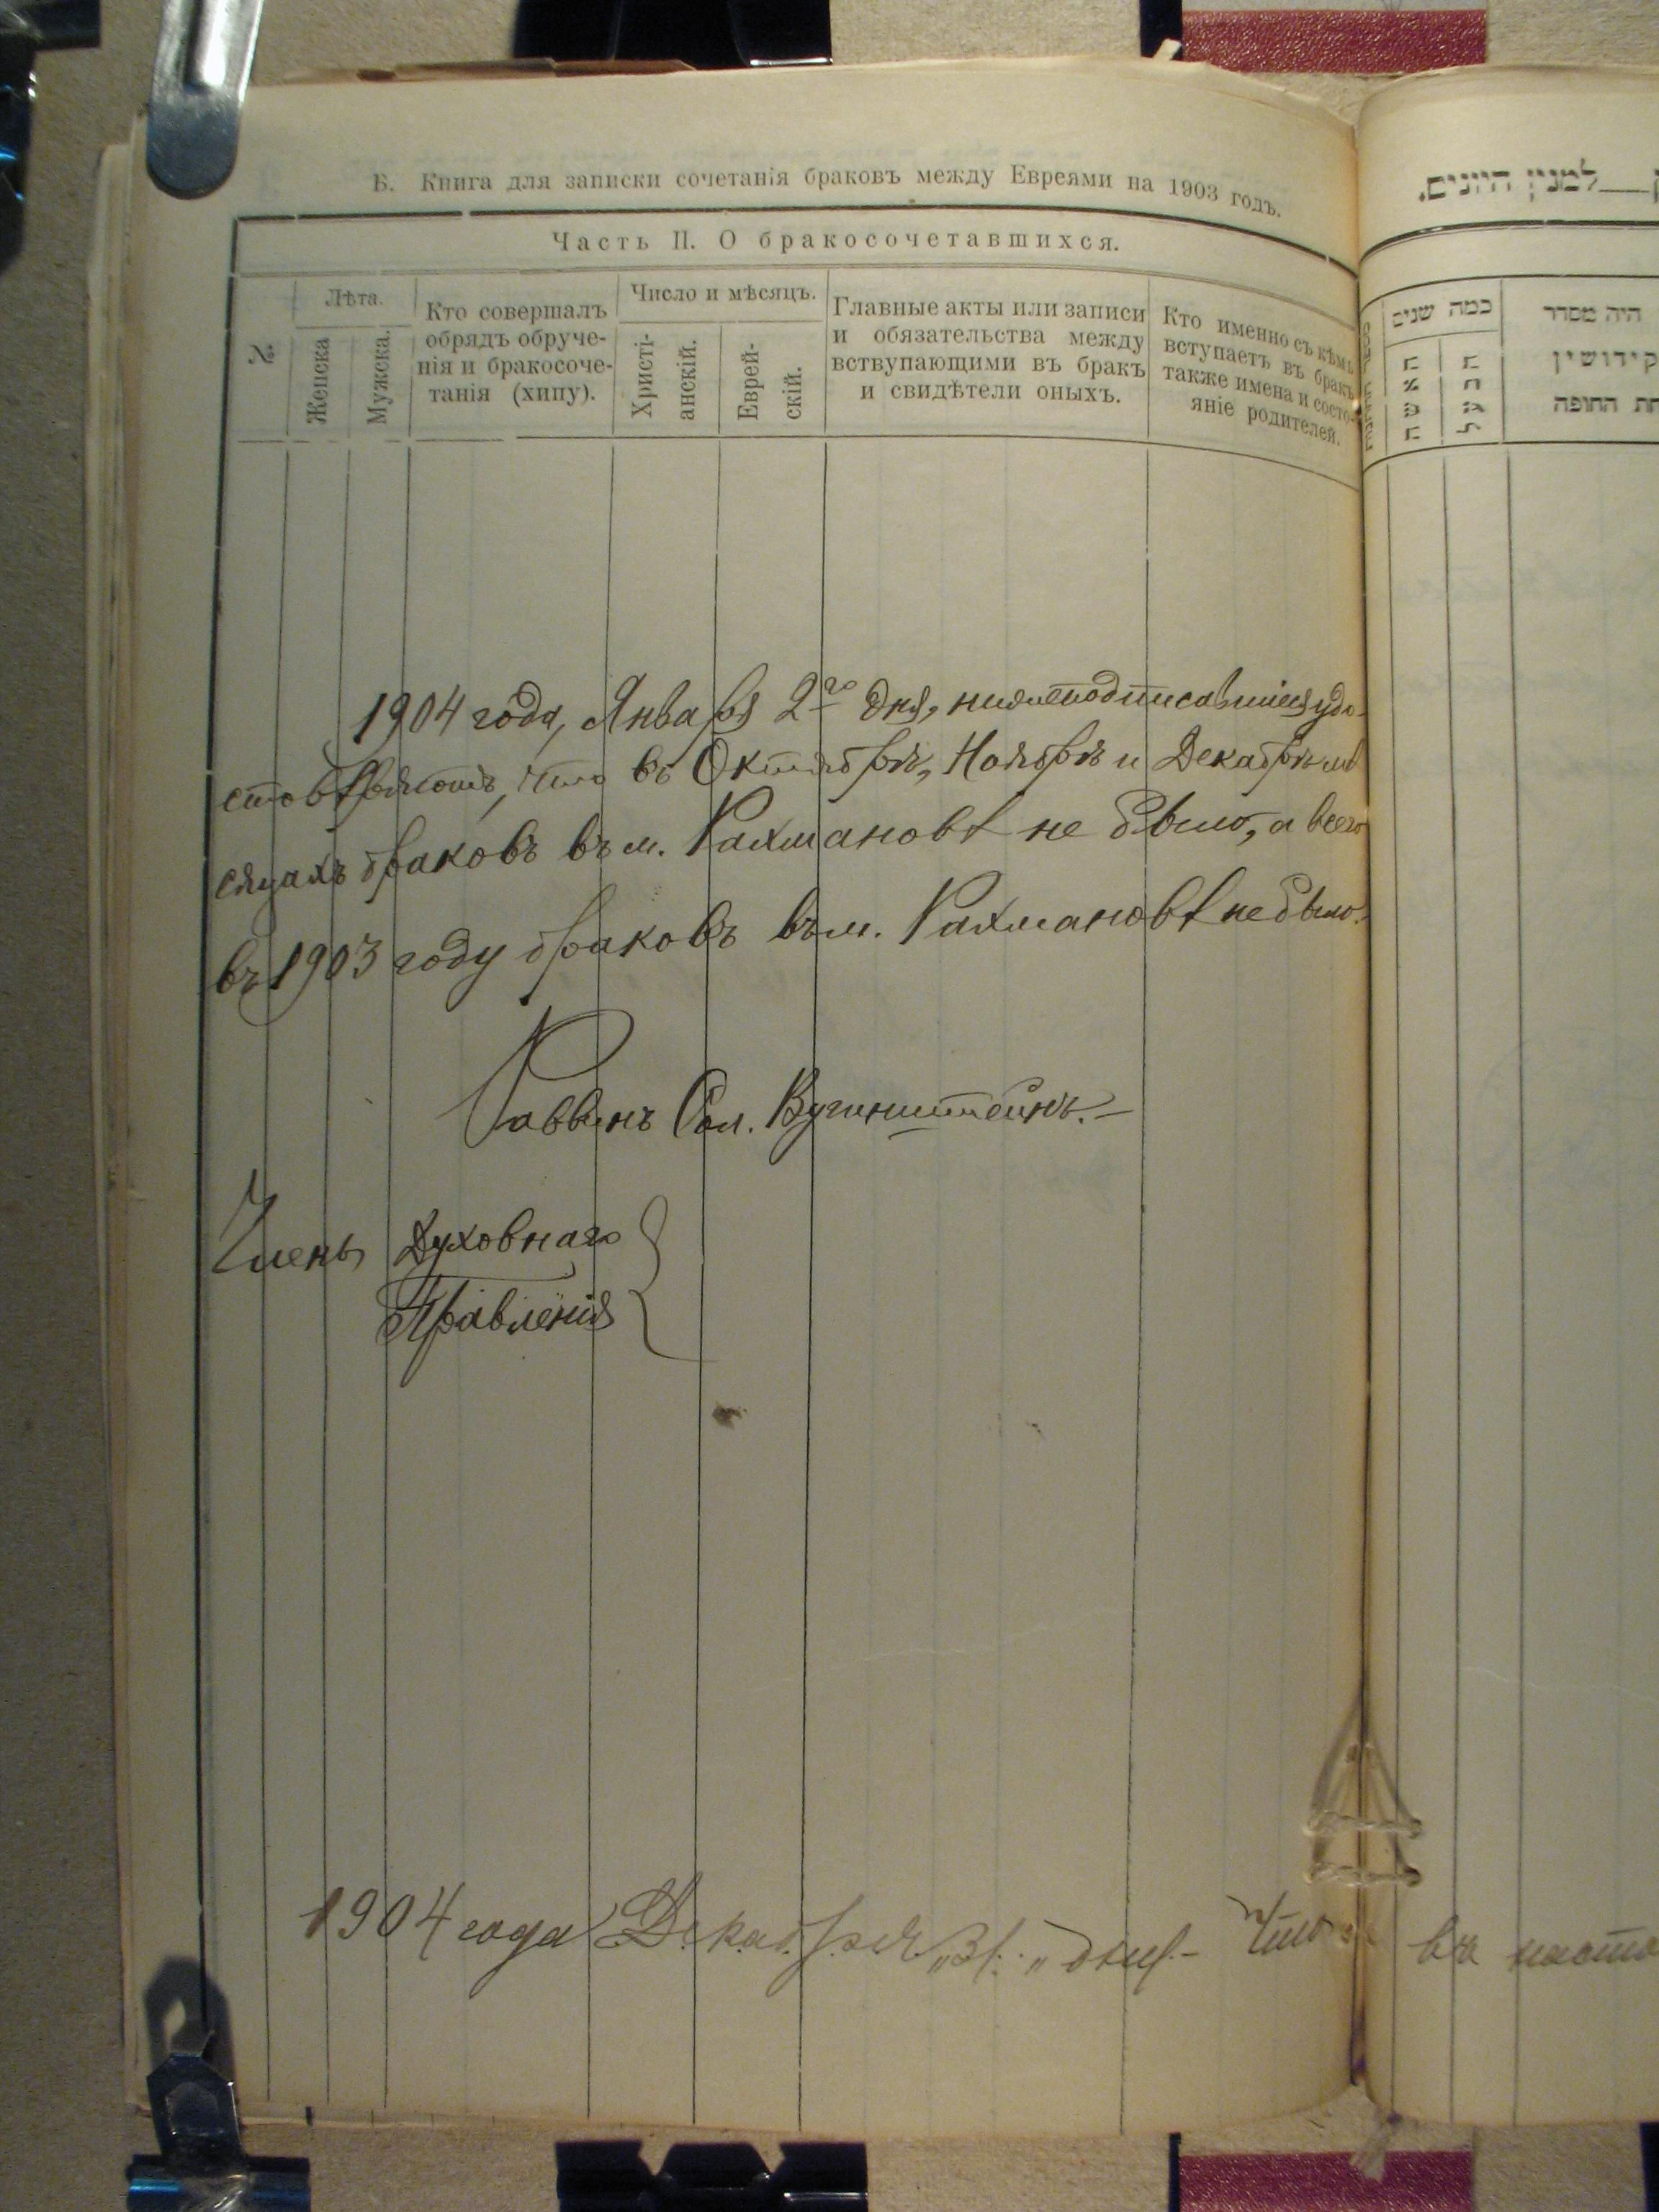 Б. Книга для записки сочетанія браковъ между Евреями на 1903 годъ.
Часть II. О бракосочетавшихся.
№
Лѣта.
Женска
Мужска.
Кто совершалъ
обрядъ обруче-
нія и бракосоче-
танія (хипу).
Число и мѣсяцъ.
Христі-
анскій.
Еврей-
скій.
Главные акты или записи
и обязательства между
вствупающими въ бракъ
и свидѣтели оныхъ.
Кто именно съ кѣмъ
вступаетъ въ бракъ
также имена и состо-
яніе родителей.
1904 года, Января 2го дня, нижеподписавшіеся удо-
стовѣряютъ, что въ Октябрѣ, Ноябрѣ и Декабрѣ мѣ
сяцахъ браковъ въ м. Рахмановѣ не было, а всего
въ 1903 году браковъ въ м. Рахмановѣ не было.
Раввинъ Сол. Вугинштейнъ.-
Члены Духовнаго
Правленія
1904 года Декабря „31" дня.- Что
למנין היונים.
כמה שנים
האשה
הבעל
היה מסדר
קידושין
החופה
въ насто